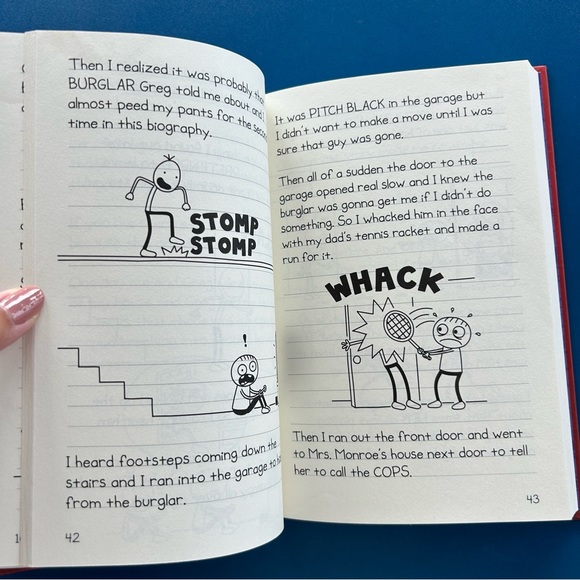 Then I realized it was probably
BURGLAR Greg told me about and I
almost peed my pants for the
time in this biography.
STOMP
STOMP
!
I heard footsteps coming down the
stairs and I ran into the garage to
from the burglar.
42
It was PITCH BLACK in the garage but
I didn't want to make a move until I was
sure that guy was gone.
Then all of a sudden the door to the
garage opened real slow and I knew the
burglar was gonna get me if I didn't do
something. So I whacked him in the face
with my dad's tennis racket and made a
run for it.
WHACK
Then I ran out the front door and went
to Mrs. Monroe's house next door to tell
her to call the COPS.
43